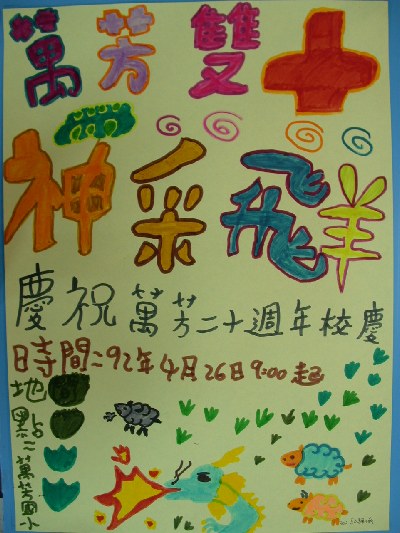 萬芳雙十
神彩飛羊
慶祝萬芳二十週年校慶
時間:92年4月26日9:00起
地點:萬芳國小